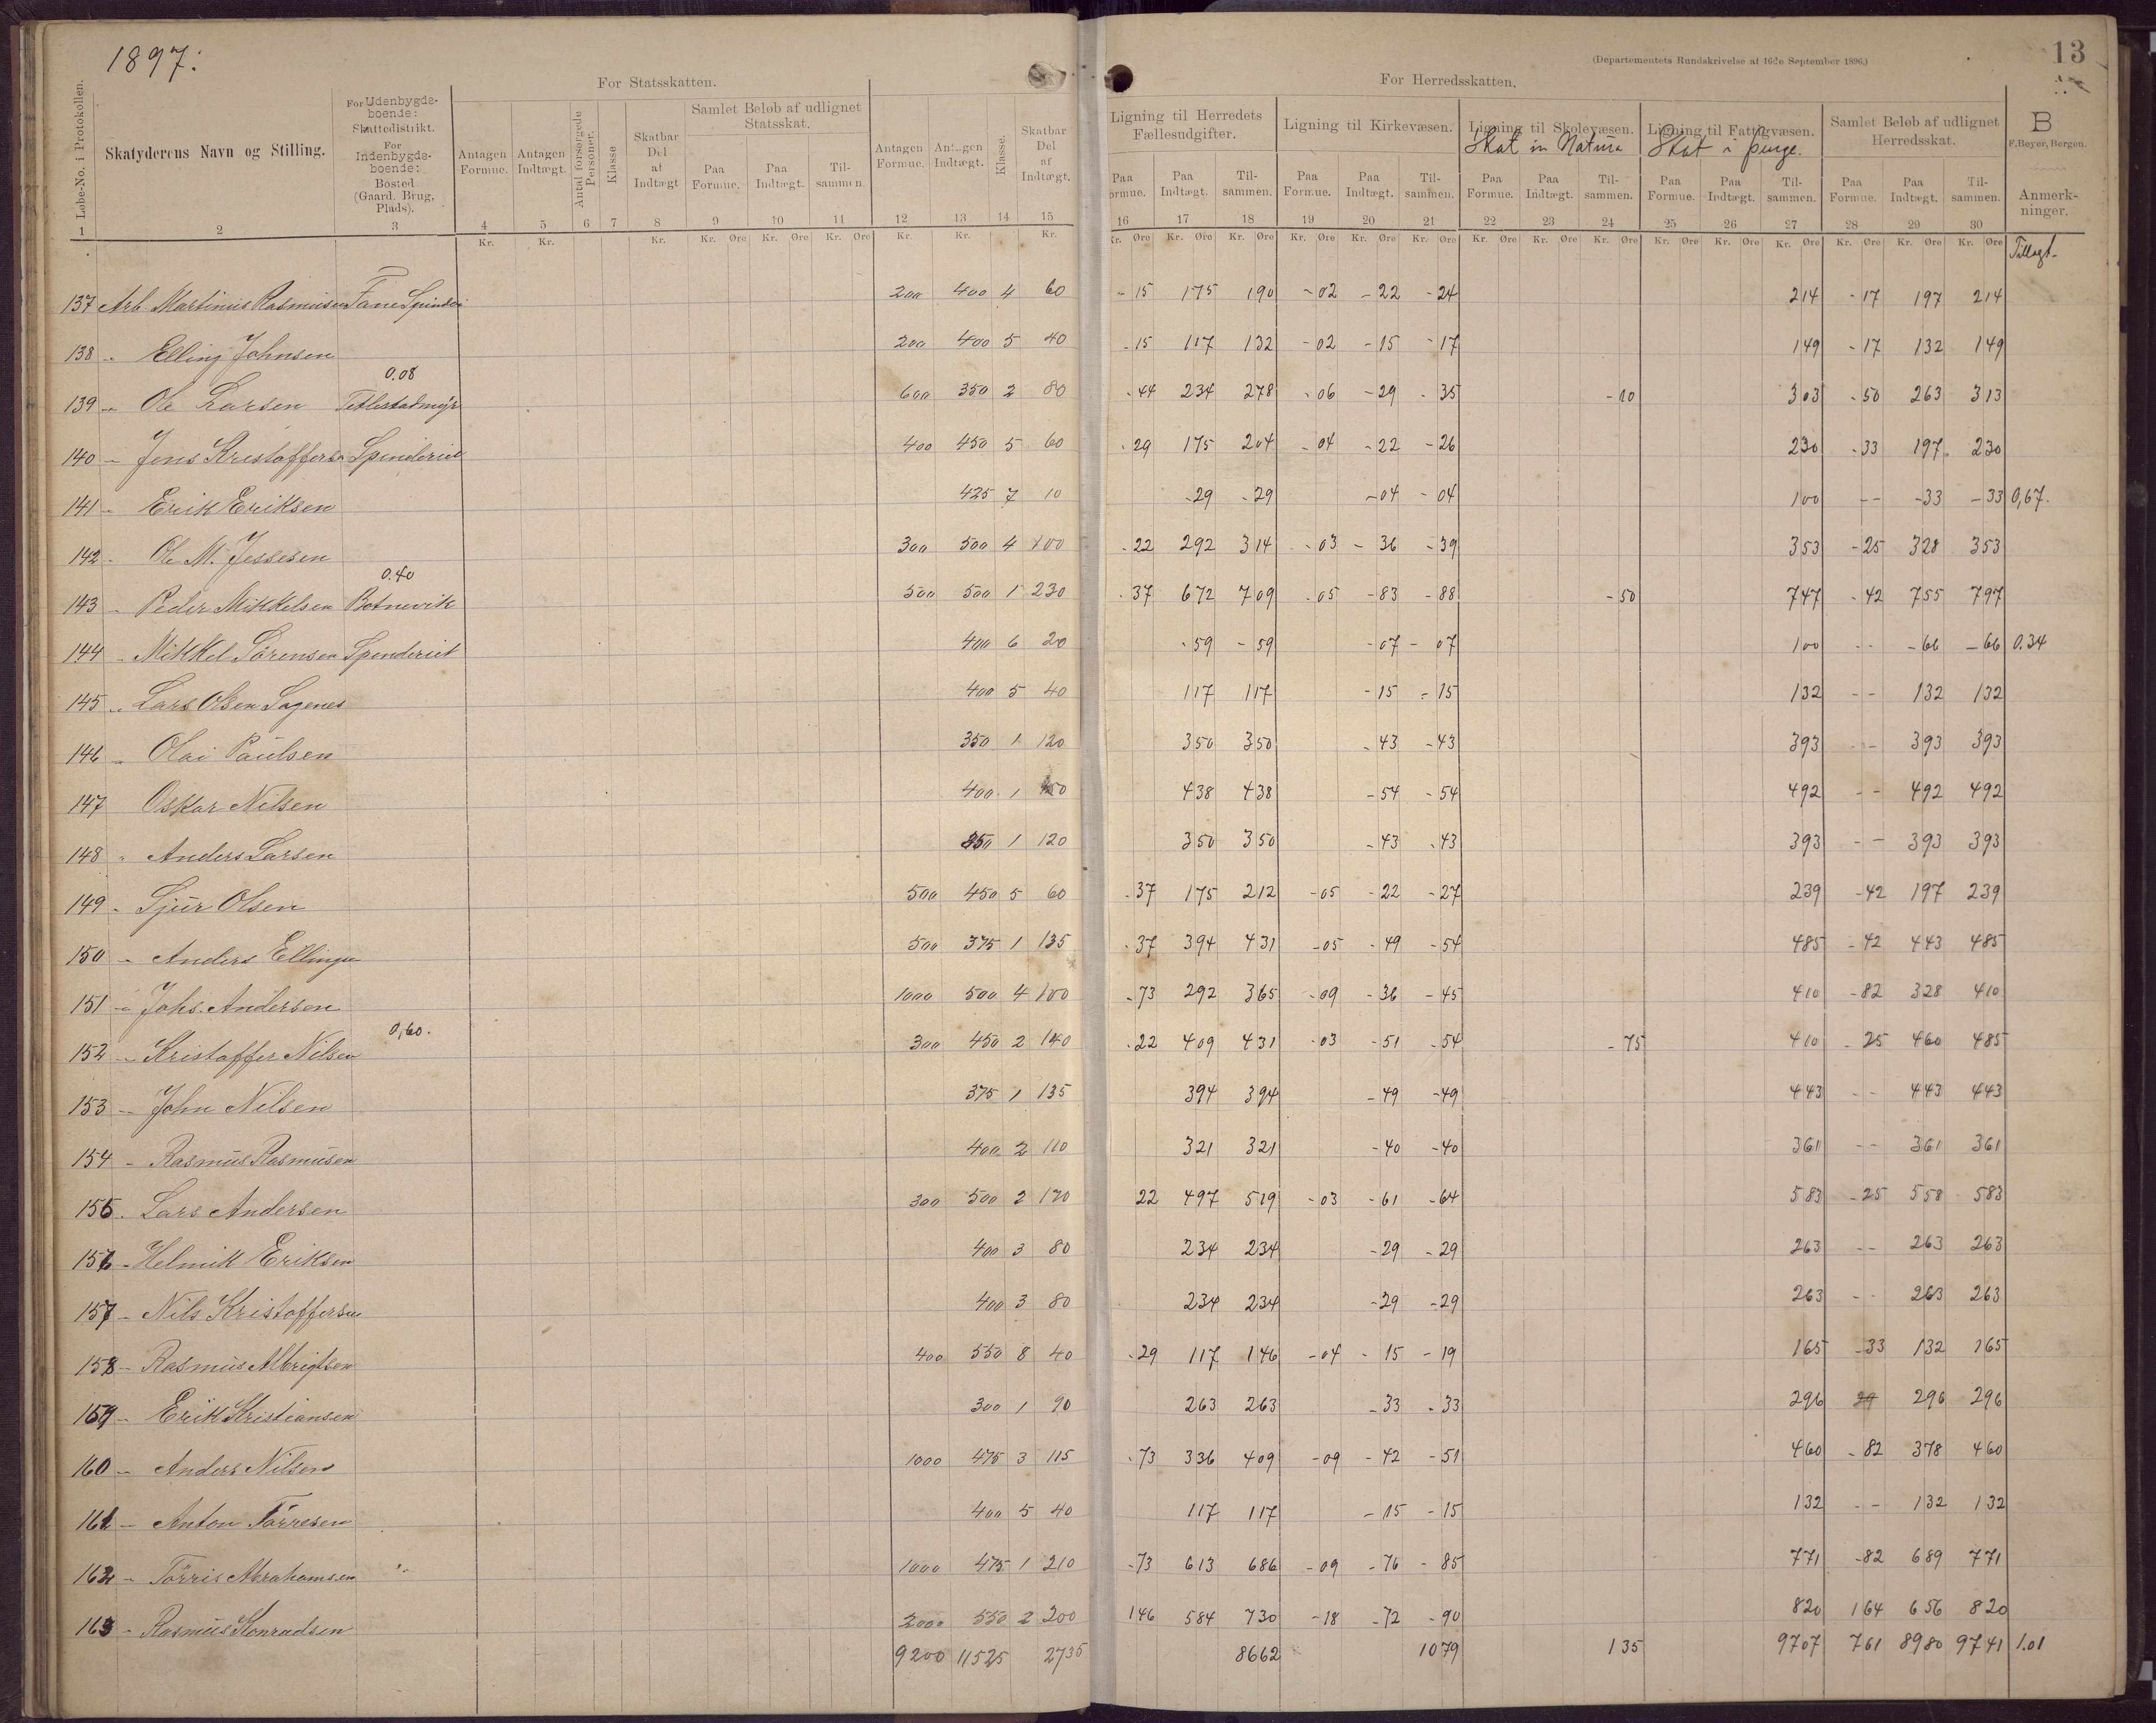 1897.
13
(Departementets Rundskrivelse af 16de September 1896.)
For Statsskatten.
For Herredsskatten.
Løbe-No. i Protokollen.
Skatyderens Navn og Stilling.
For Udenbygds-boende: Skattedistrikt. For Indenbygds-boende: Bosted (Gaard, Brug, Plads).
Antagen Formue.
Antagen Indtægt.
Antal forsørgede Personer.
Klasse
Skatbar Del af Indtægt
Samlet Beløb af udlignet Statsskat.
Paa Formue. Paa Indtægt. Til-sammen.
Antagen Formue.
Antagen Indtægt.
Klasse.
Skatbar Del af Indtægt.
Ligning til Herredets Fællesudgifter.
Paa Formue. Paa Indtægt. Til-sammen.
Ligning til Kirkevæsen.
Paa Formue. Paa Indtægt. Til-sammen.
Ligning til Skolevæsen.
Skat in Natura
Paa Formue. Paa Indtægt. Til-sammen.
Ligning til Fattigvæsen.
Skat i penge.
Paa Formue. Paa Indtægt. Til-sammen.
Samlet Beløb af udlignet Herredsskat.
Paa Formue. Paa Indtægt. Til-sammen.
B
F. Beyer, Bergen.
Anmerk-ninger.
1 2 3 4 5 6 7 8 9 10 11 12 13 14 15 16 17 18 19 20 21 22 23 24 25 26 27 28 29 30
Kr. Kr. Kr. Kr. Øre Kr. Øre Kr. Øre Kr. Kr. Kr. Kr. Øre Kr. Øre Kr. Øre Kr. Øre Kr. Øre Kr. Øre Kr. Øre Kr. Øre Kr. Øre Kr. Øre Kr. Øre Kr. Øre Kr. Øre Kr. Øre Kr. Øre
Tillagt-
137 Arb. Martinus Rasmusen Fane Spinderi 200 400 4 60 - 15 175 190 - 02 - 22 - 24 214 - 17 197 214
138 " Elling Johnsen 200 400 5 40 - 15 117 132 - 02 - 15 - 17 149 - 17 132 149
0.08
139 " Ole Larsen Titlestadmyr 600 350 2 80 - 44 234 278 - 06 - 29 - 35 - 10 303 - 50 263 313
140 - Jens Kristoffersen Spinderiet 400 450 5 60 - 29 175 204 - 04 - 22 - 26 230 - 33 197 230
141 - Erik Eriksen 425 7 10 - 29 - 29 - 04 - 04 100 - - - 33 - 33 0,67.
142 - Ole M. Jessesen 300 500 4 100 - 22 292 314 - 03 - 36 - 39 353 - 25 328 353
0.40
143 - Peder Mikkelsen Botnevik 500 500 1 230 - 37 672 709 - 05 - 83 - 88 - 50 747 - 42 755 797
144 - Mikkel Sørensen Spinderiet 400 6 20 - 59 - 59 - 07 - 07 100 - - - 66 - 66 0.34
145 " Lars Olsen Sagenes 400 5 40 117 117 - 15 - 15 132 - - 132 132
146 - Olai Paulsen 350 1 120 350 350 - 43 - 43 393 - - 393 393
147 Oskar Nilsen 400 1 150 438 438 - 54 - 54 492 - - 492 492
148 " Anders Larsen 350 1 120 350 350 - 43 - 43 393 - - 393 393
149 - Sjur Olsen 500 450 5 60 - 37 175 212 - 05 - 22 - 27 239 - 42 197 239
150 - Anders Ellingsen 500 375 1 135 - 37 394 431 - 05 - 49 - 54 485 - 42 443 485
151 - Johs. Andersen 1000 500 4 100 - 73 292 365 - 09 - 36 - 45 410 - 82 328 410
0,60.
152 - Kristoffer Nilsen 300 450 2 140 - 22 409 431 - 03 - 51 - 54 - 75 410 - 25 460 485
153 - John Nilsen 375 1 135 394 394 - 49 - 49 443 - - 443 443
154 - Rasmus Rasmusen 400 2 110 321 321 - 40 - 40 361 - - 361 361
155 - Lars Andersen 300 500 2 170 22 497 519 - 03 - 61 - 64 583 - 25 558 583
156 - Helmik Eriksen 400 3 80 234 234 - 29 - 29 263 - - 263 263
157 - Nils Kristoffersen 400 3 80 234 234 - 29 - 29 263 - - 263 263
158 - Rasmus Albrigtsen 400 550 8 40 - 29 117 146 - 04 - 15 - 19 165 - 33 132 165
159 - Erik Kristiansen 300 1 90 263 263 - 33 - 33 296 29 296 296
160 - Anders Nilsen 1000 475 3 115 - 73 336 409 - 09 - 42 - 51 460 - 82 378 460
161 - Anton Tørresen 400 5 40 117 117 - 15 - 15 132 - - 132 132
162 - Tørris Abrahamsen 1000 475 1 210 - 73 613 686 - 09 - 76 - 85 771 - 82 689 771
163 - Rasmus Konradsen 2000 550 2 200 146 584 730 - 18 - 72 - 90 820 164 656 820
9200 11525 2735 8662 1079 135 9707 761 8980 9741 1.01